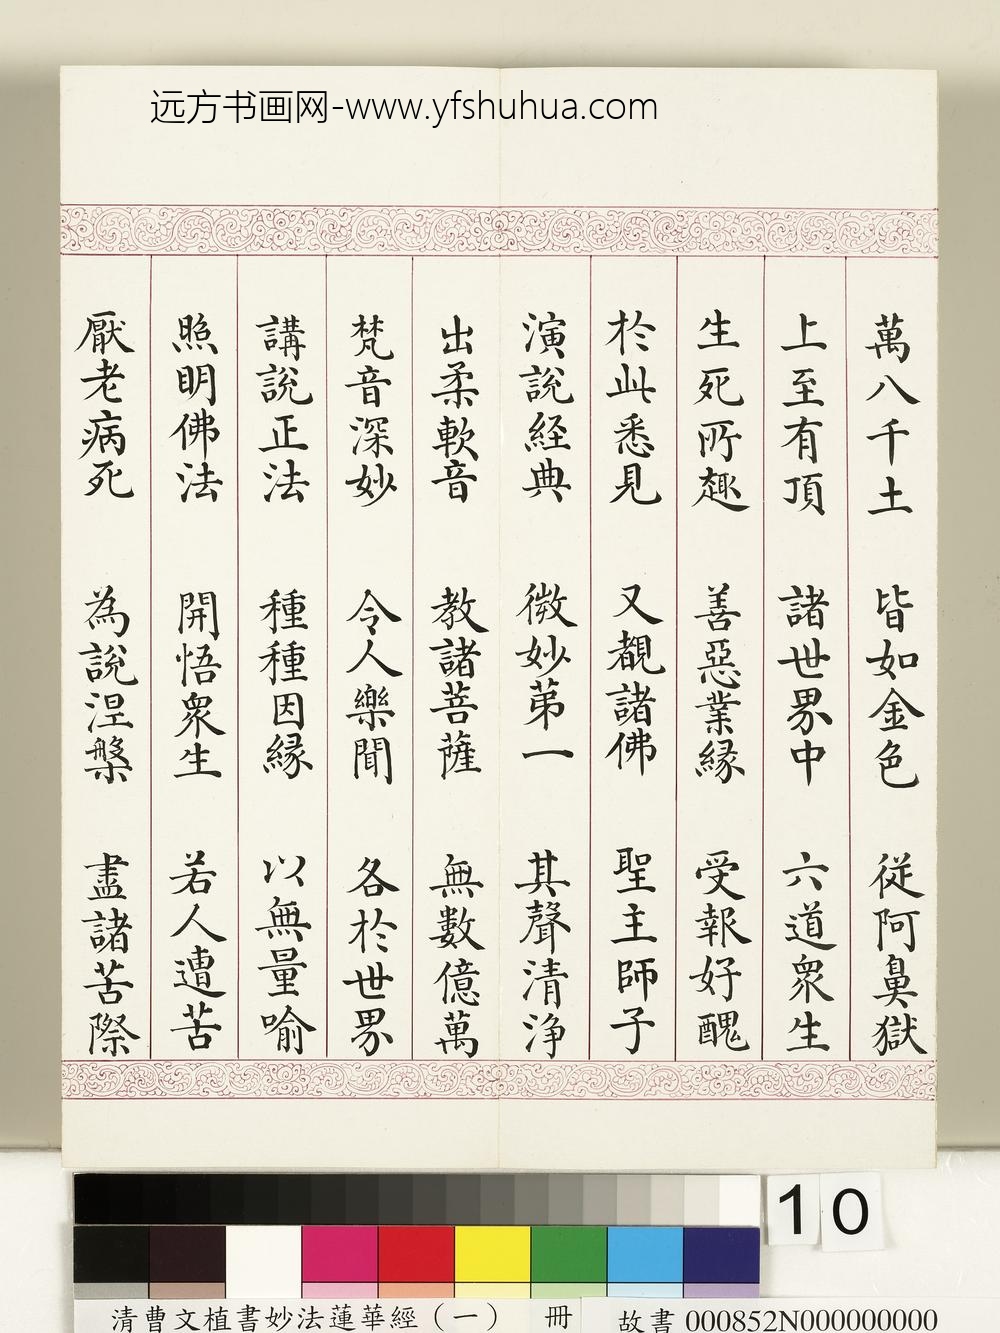 远方书画网-www.yfshuhua.com
萬八千土 皆如金色 從阿鼻獄
上至有頂 諸世界中 六道眾生
生死所趣 善惡業緣 受報好醜
於此悉見 又覩諸佛 聖主師子
演說經典 微妙第一 其聲清淨
出柔軟音 教諸菩薩 無數億萬
梵音深妙 令人樂聞 各於世界
講說正法 種種因緣 以無量喻
照明佛法 開悟眾生 若人遭苦
厭老病死 為說涅槃 盡諸苦際
10
清曹文植書妙法蓮華經（一） 冊 故書000852N000000000